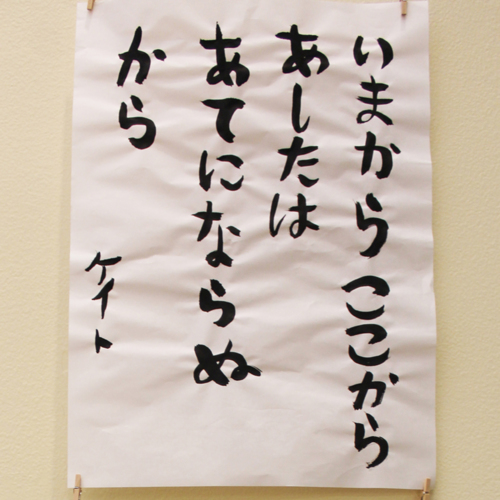 いまから ここから
あしたは
あてにならぬ
から
ケイト